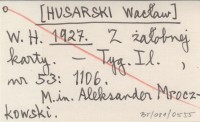 [HUSARSKI Wacław]
W.H. 1927. Z żałobnej
karty. – Tyg. Il.,
nr 53: 1106.
M.in. Aleksander Mrocz-
kowski.